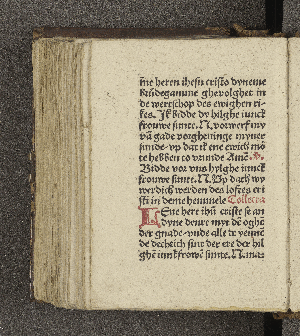 me heren ihesu cristo dyneme
brudegamme ghevolghet in
de wertschop des ewighen ri-
kes. Jk bidde dy hilghe iunck
frouwe sunte. N. vorwerf my
vā gade vorghevinge myner
sunde. vp dat ik ene ewich mö
te hebben to vrunde Amē. V.
Bidde vor vns hylghe iunck
frouwe sunte. N. Vp dath wy
werdich werden des loftes cri
sti in deme hemmele Collecta
HEre here ihū criste se an
dyne denre myt dē oghē
der gnade. vnde alle de yennē
de dechtich sint der ere der hil
ghē iunkfrowē sunte. N. ma-